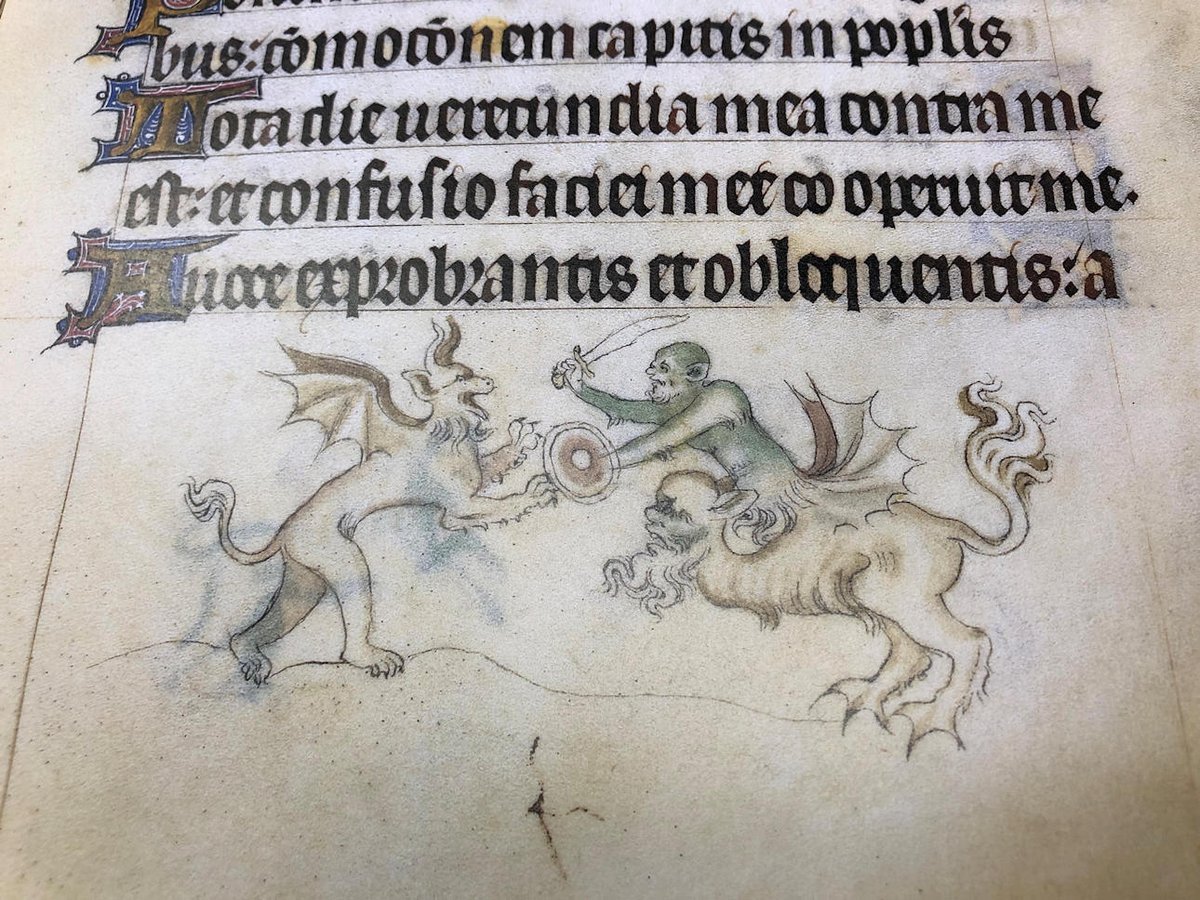 bus: cōmocōnem capitis in poplīs
Tota die uerecundia mea contra me
est: et confusio faciei mee cooperuit me.
A uoce exprobrantis et obloquentis: a